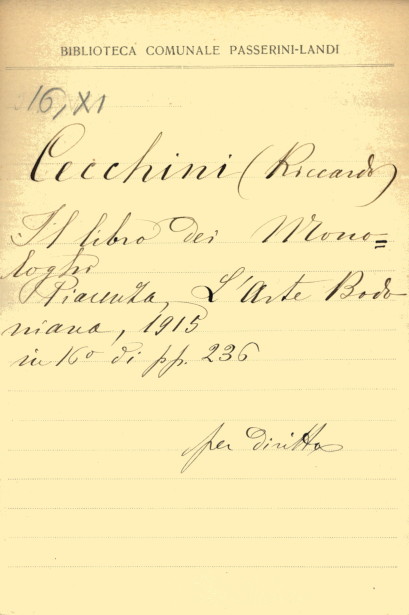 BIBLIOTECA COMUNALE PASSERINI-LANDI
16, XI
Cecchini (Riccardo)
Il libro dei Mono=
loghi
Piacenza, L'Arte Bodo
niana, 1915
in 16º di pp. 236
per diritto